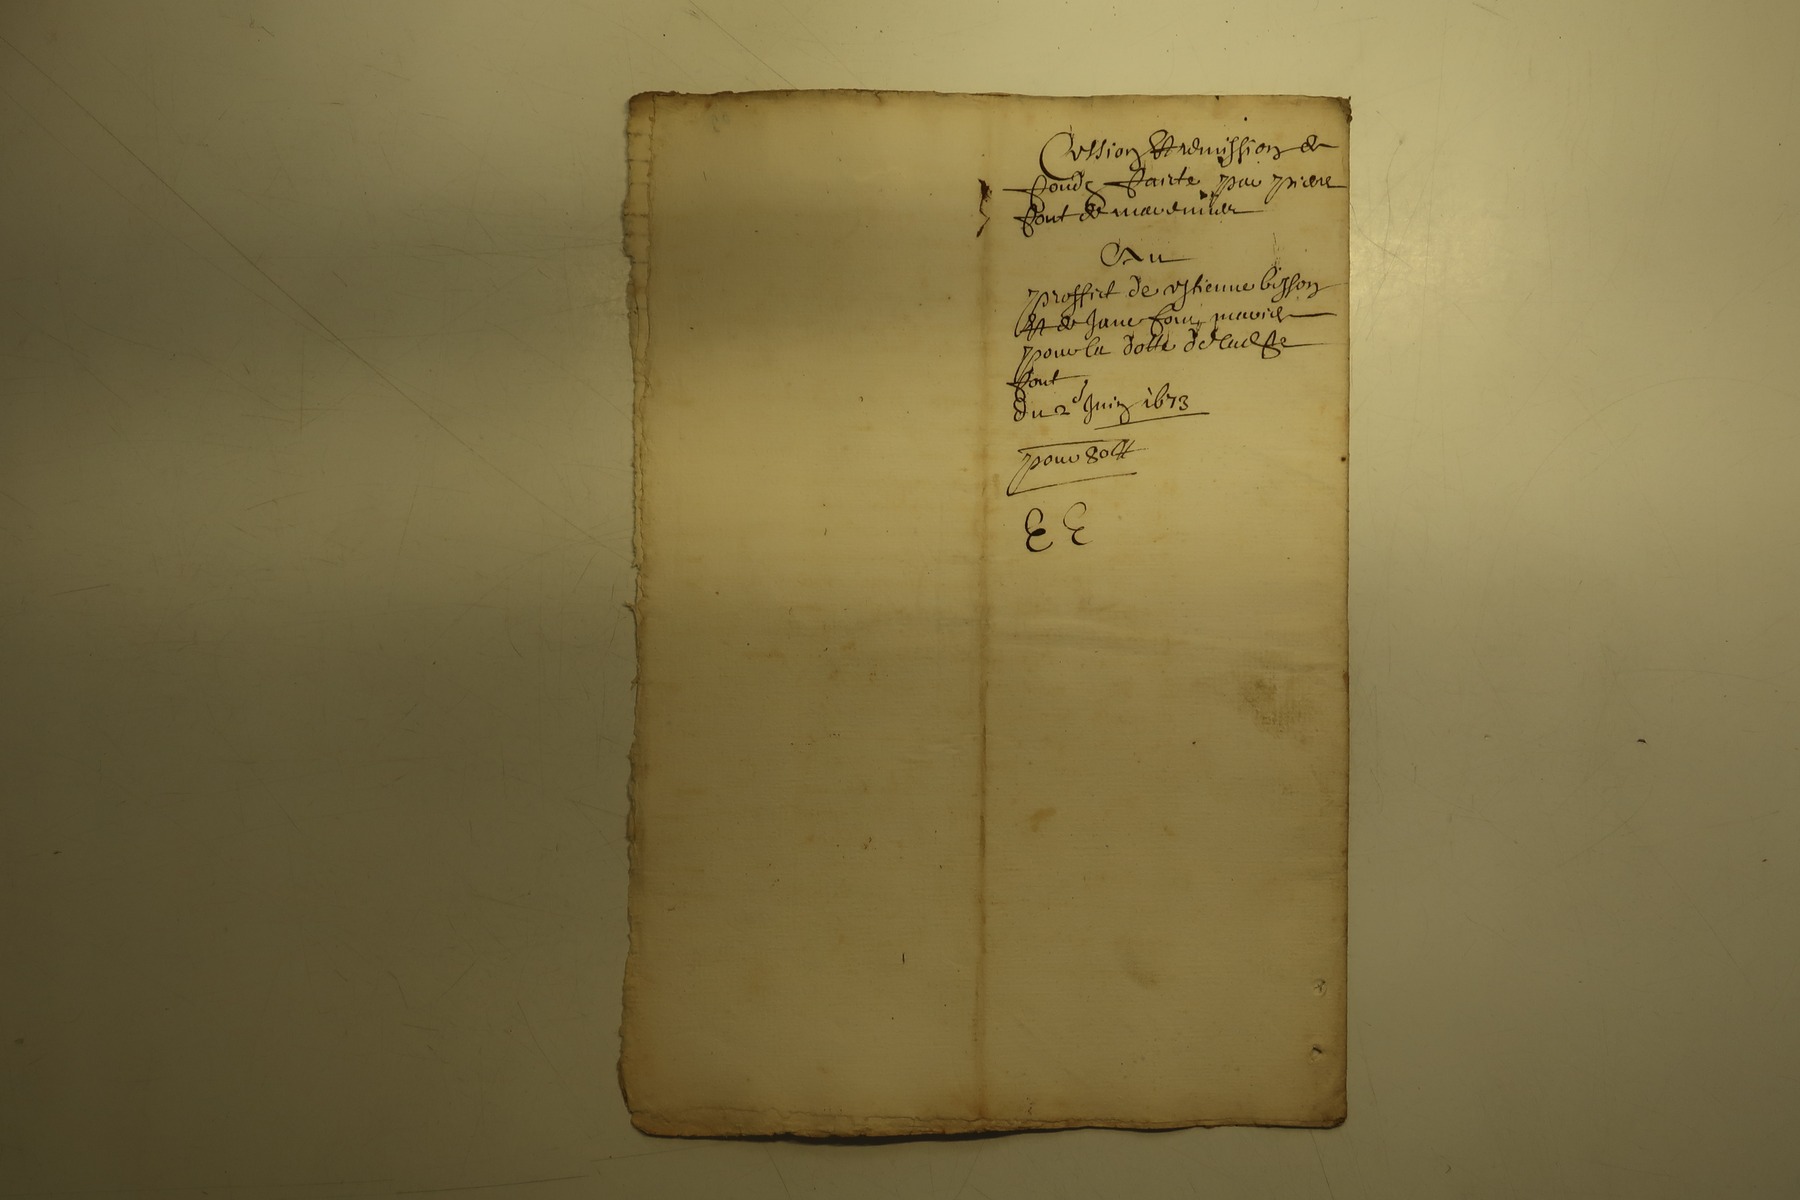 Cession Et remission de
fondz faicte par pierre
font de
Au
proffict de estienne bisson
Et de Jane font maries
pour la dotte de ladicte
font
du 2e Juin 1673
pour 80 lt
E E